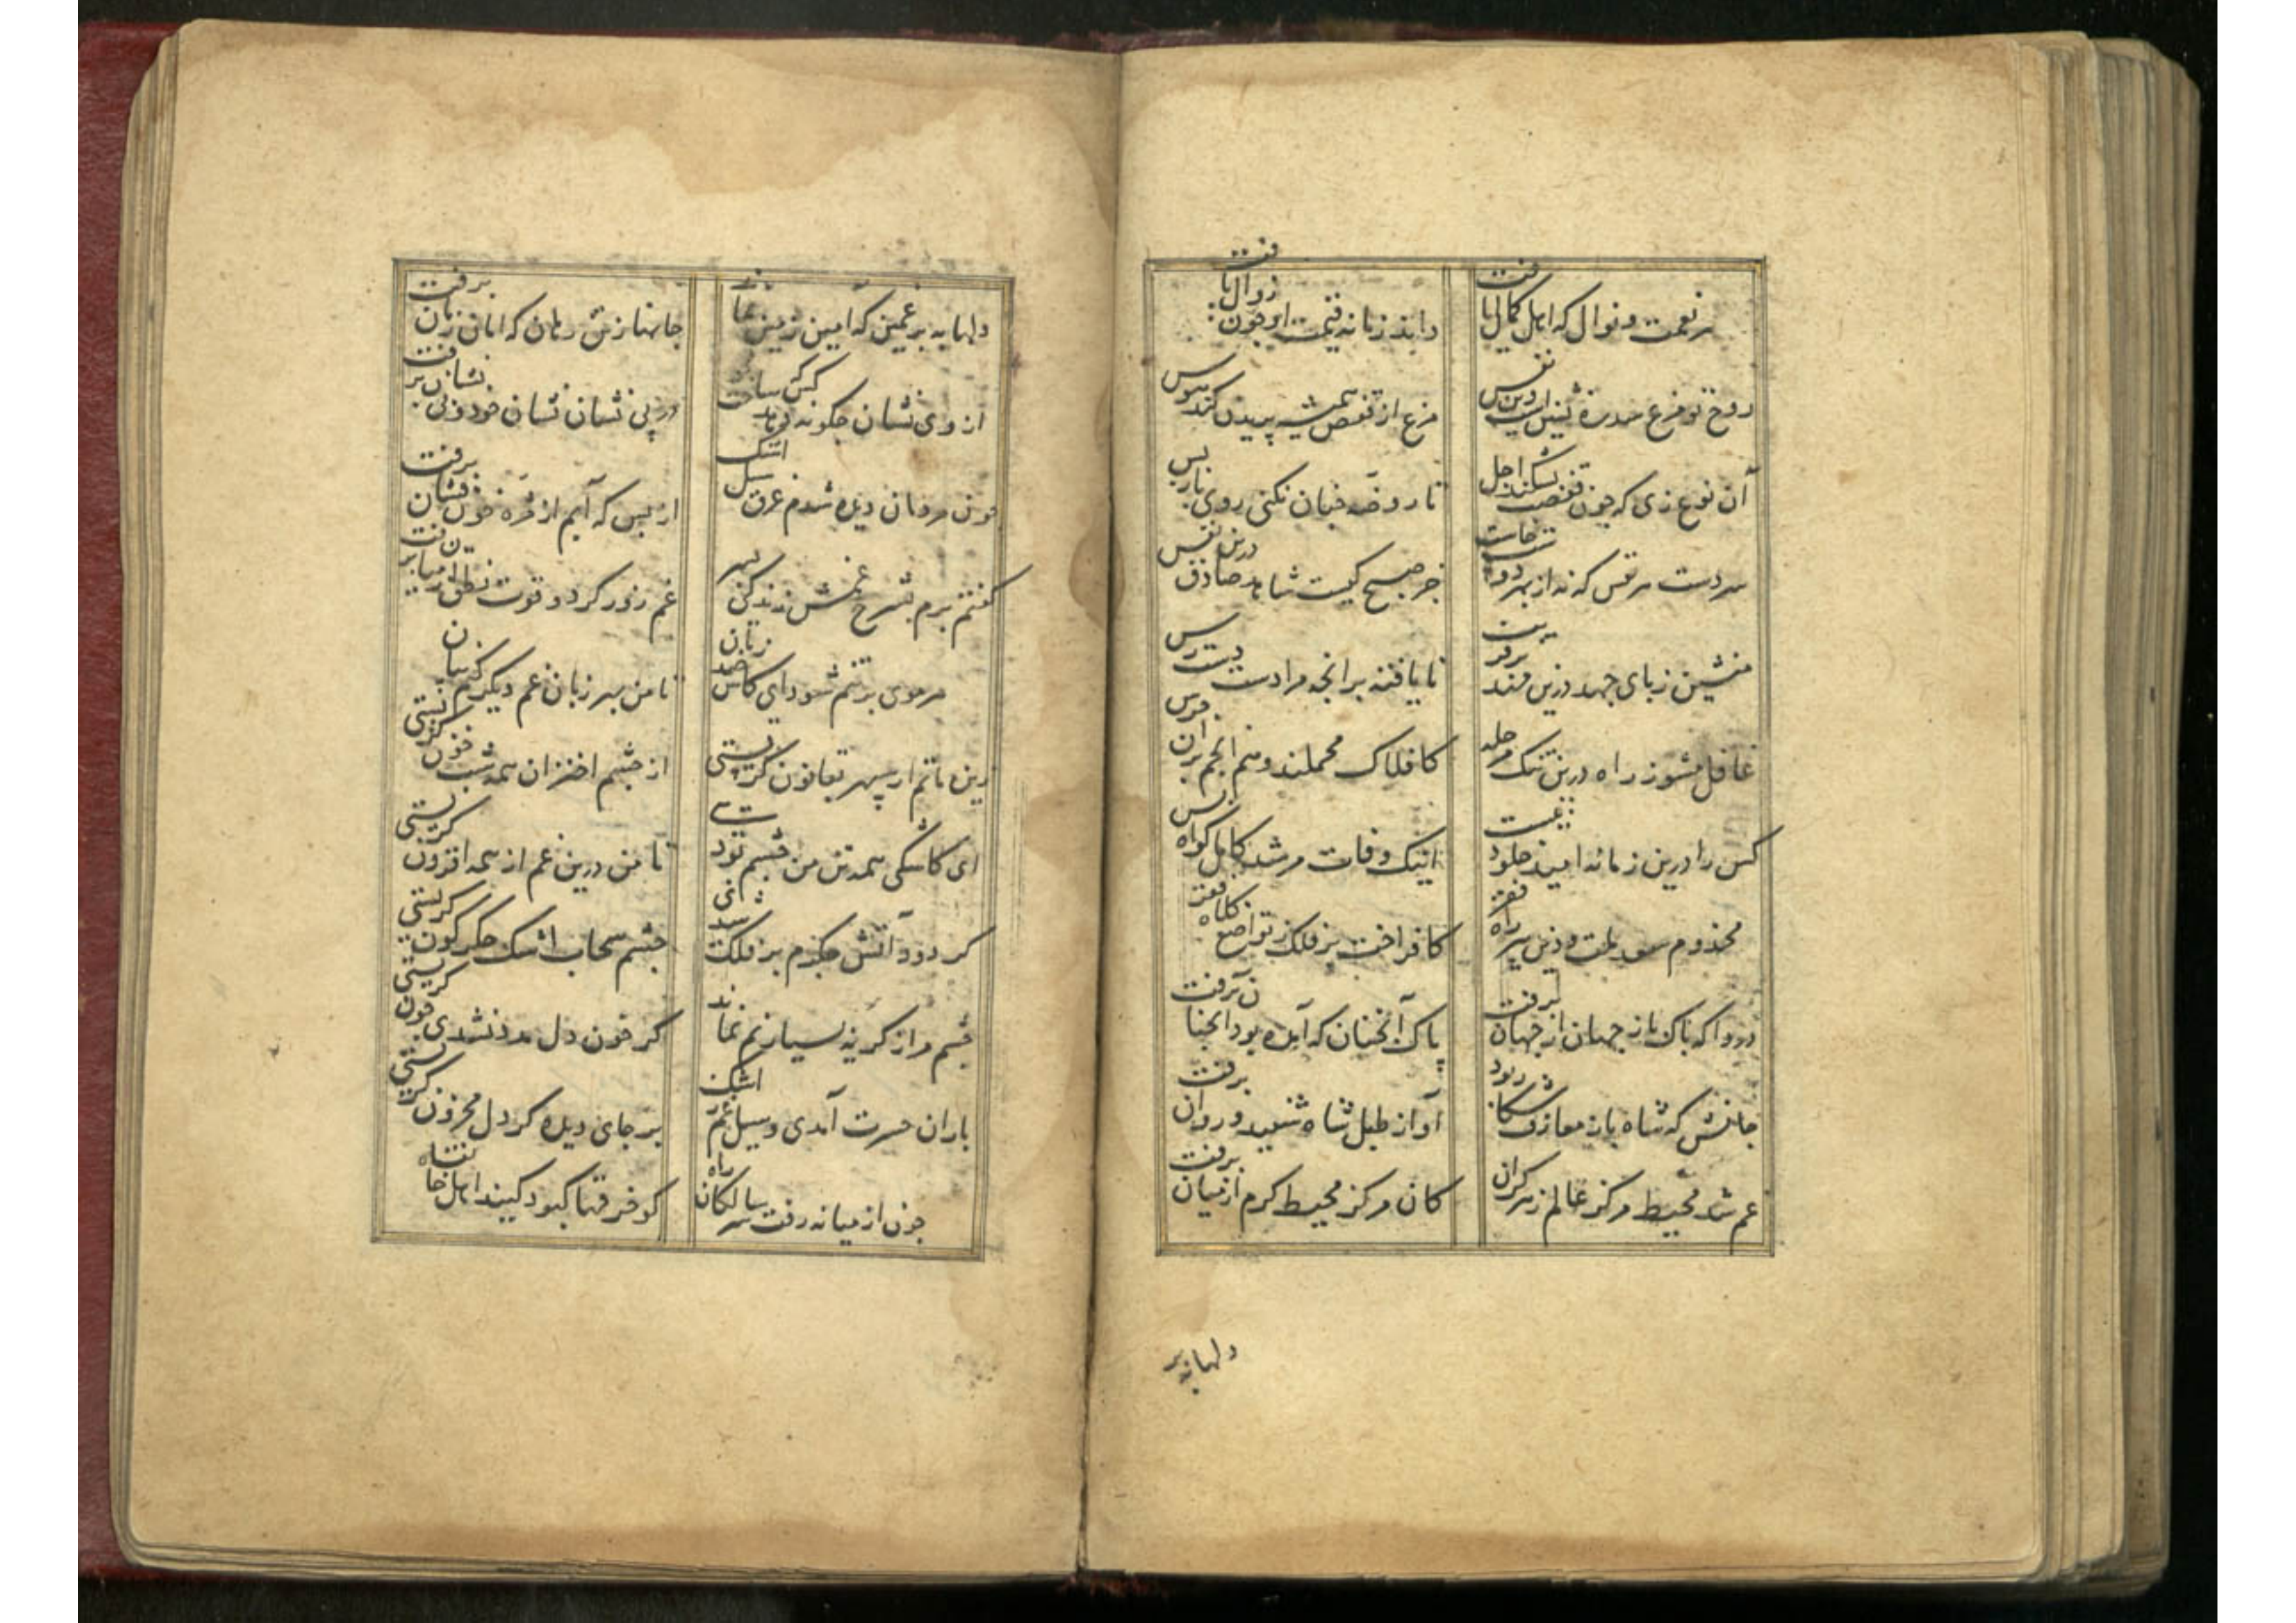 هر نعمت و نوال که اهل کمال یافت
داند زمانه قیمت او چون زوال یافت
روح تو مرغ سدره نشین است درین قفس
مرغ از قفس همیشه پریدن کند هوس
آن نوع زی که چون قفصت بشکند اجل
تا روضه جنان نکنی روی باز پس
سردست هر نفس که نه از مهر دوست خاست
جز صبح کیست شاهد صادق درین نفس
منشین ز پای جهد درین
نایافته بر آنچه مرادت دست رس
غافل مشو ز راه درین تنک مرحله
کافلاک محملند و هم انجم بران جرس
کس را درین زمانه امید خلود نیست
اینک وفات مرشد کامل گواه بس
مخدوم سعد ملت و دین پیر راه فقر
کافراخت بر فلک ز تواضع کلاه فقر
دردا که پاک باز جهان از جهان برفت
پاک آنچنان که آمده بود آنچنان برفت
جانش که شاه باز معارف شکار بود
آواز طبل شاه شنید و روان برفت
غم شد محیط مرکز عالم ز هر کران
کان مرکز محیط کرم از میان برفت
دلها به بر
دلها به بر غمین که امین زمین نماند
جانها ز تن رمان که امان زمان برفت
از وی نشان چگونه دهد کس
در بی نشان نشان خود و بی نشان برفت
چون مردمان دیده شدم غرق سیل اشک
از بس که آبم از مژه خون فشان برفت
گفتم برم بشرح غمش زندگی بسر
غم زور کرد و قوت نطق از میان برفت
هر موی بر تنم شود ای کاش صد زبان
تا من بهر زبان غم دیگر کنم بیان
زین ماتم ار سپهر بقانون گریستی
از چشم اختران همه شب خون گریستی
ای کاشکی همه تن من چشم بودی
تا من درین غم از همه افزون گریستی
گر دود آتش جگرم بر فلک شدی
چشم سحاب اشک جگرگون گریستی
چشم مرا ز گریه بسیار نم نماند
گر خون دل مدد نشدی چون گریستی
باران حسرت آمدی و سیل غم اشک
بر جای دیده گر دل محزون گریستی
چون از میانه رفت سر سالکان راه
کو خرقها کبود کنید اهل خانقاه